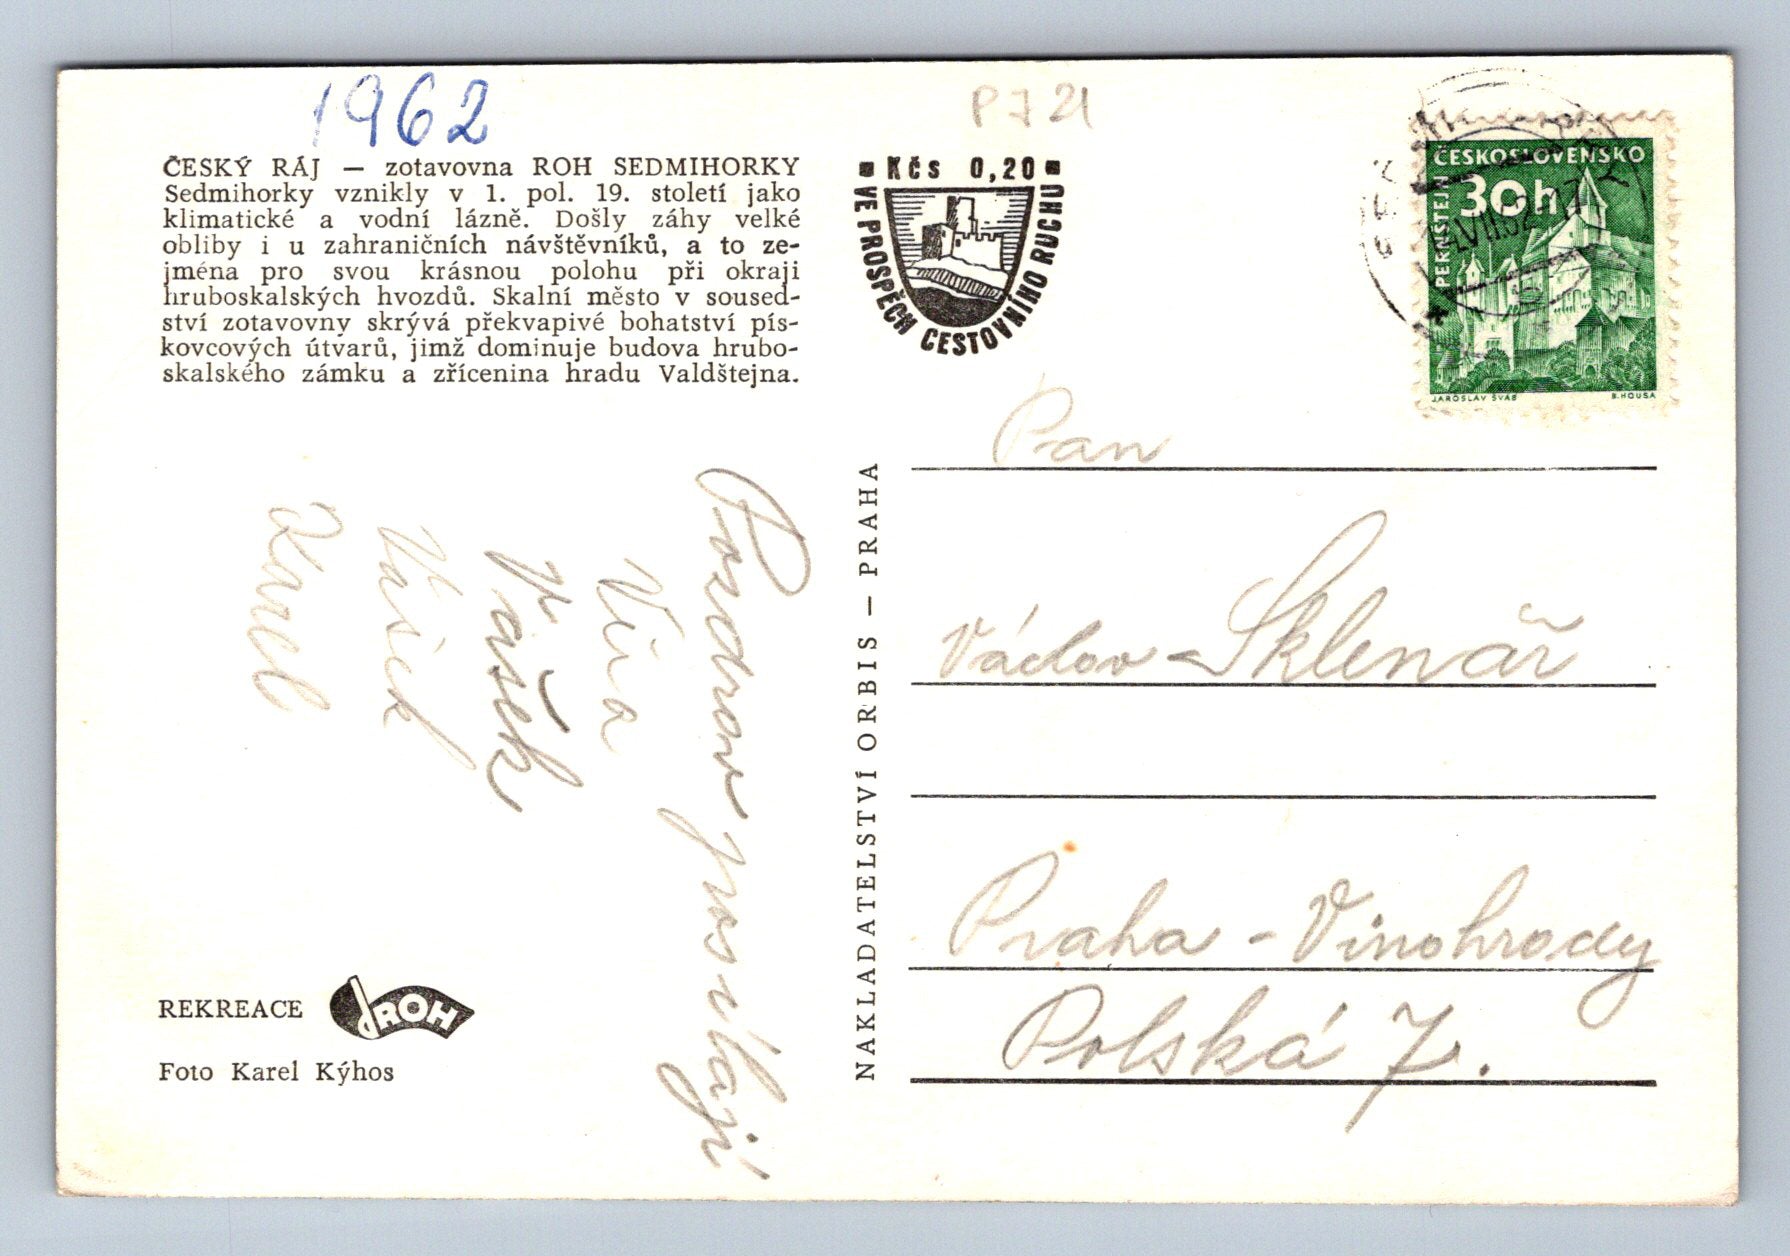 1962
P 7 21
ČESKÝ RÁJ — zotavovna ROH SEDMIHORKY
Sedmihorky vznikly v 1. pol. 19. století jako
klimatické a vodní lázně. Došly záhy velké
obliby i u zahraničních návštěvníků, a to ze-
jména pro svou krásnou polohu při okraji
hruboskalských hvozdů. Skalní město v soused-
ství zotavovny skrývá překvapivé bohatství pís-
kovcových útvarů, jimž dominuje budova hrubo-
skalského zámku a zřícenina hradu Valdštejna.
Kčs 0,20
VE PROSPĚCH CESTOVNÍHO RUCHU
ČESKOSLOVENSKO
30h
PERNŠTEJN
JAROSLAV ŠVÁB
B. HOUSA
Pozdrav posílají
Věra
Vašek
Vašek
Karel
NAKLADATELSTVÍ ORBIS — PRAHA
Pan
Václav Sklenář
Praha - Vinohrady
Polská 7.
REKREACE ROH
Foto Karel Kýhos